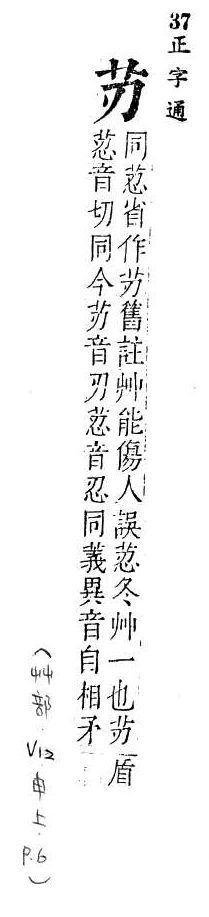 37正字通
同荵省作舊註艸能傷人誤荵冬艸一也盾
荵音切同今音刃荵音忍同義異音自相矛
(艸部 V12 申上 P.6)